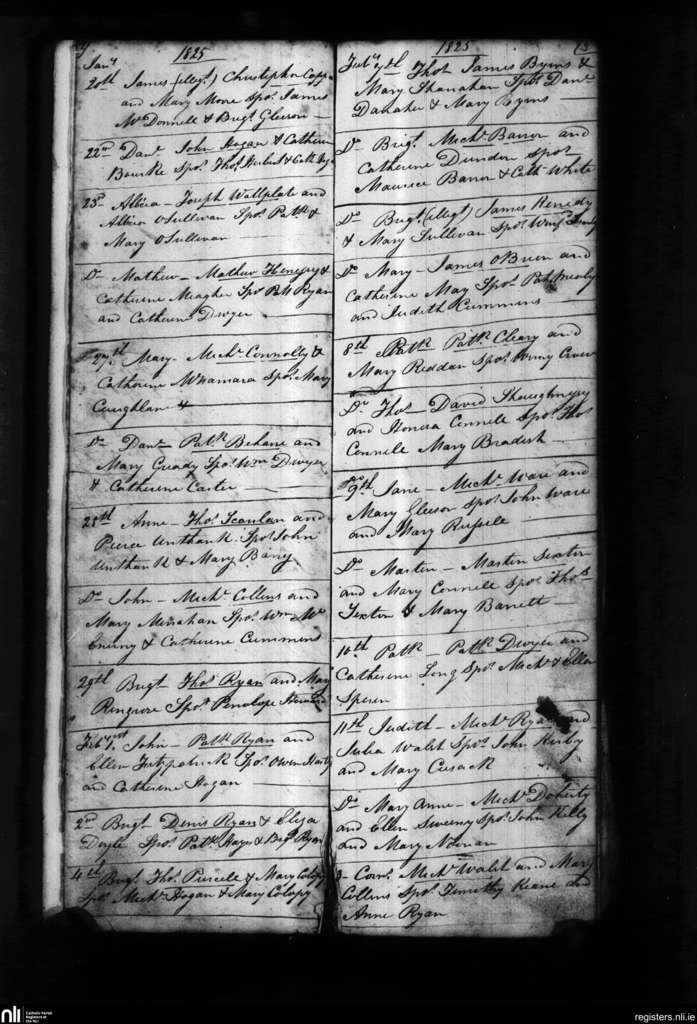 1825
Jany
20th James (illegt.) Christopher
and Mary Mone Spors. James
McDonnell & Brigt. Gleeson
22nd Danl. John Hogan & Catherine
Bourke Spors. Thos. Herbert & Cath.
25th Albina - Joseph Wallplate and
Albina OSullivan Spors. Patk. &
Mary OSullivan
Do Mathew - Mathew &
Catherine Meagher Spors. Patt Ryan
and Catherine Dwyer
27th Mary - Michl. Connolly &
Catherine McNamara Spors. Mary
Coughlane &
Do Danl. - Patk. Behane and
Mary Gready Spors. Wm. Dwyer
& Catherine Carter
28th Anne - Thos. Scanlan and
Pierce Unthank Spors. John
Unthank & Mary Barry
Do John - Michl. Collens and
Mary Minahan Spors. Wm. Mc
& Catherine Cummens
29th Brigt Thos. Ryan and Mary
Spors. Penelope
Feby 1st John - Patk. Ryan and
Ellen Fitzpatrick Spors. Owen
and Catherine Hogan
2nd Brigt Denis Ryan & Eliza
Doyle Spors. Patk. Hayes & Brigt. Ryan
4th Brigt. Thos. Purcell & Mary Colopy
Spors. Michl. Hogan & Mary Colopy
1825
Feby 7th Thos. James Byrns &
Mary Shanahan Spors. Danl.
Danaher & Mary Byrns
Do Brigt. Michl. Barron and
Catherine Dundon Spors.
Maurice Barron & Cath. White
Do Brigt. (illegt) James Kenedy
& Mary Sullivan Spors.
Do Mary - James OBrien and
Catherine May Spors. Patk.
and Judith Cummins
8th Patk. Patk. Cleary and
Mary Reddan Spors. Winny
Do Thos. - David Shaughnysy
and Honora Connell Spors. Thos.
Connell Mary Bradish
9th Jane - Michl. Ware and
Mary Gleeson Spors. John Ware
and Mary Russell
Do Marten - Marten Sexton
and Mary Connell Spors. Thos.
Sexton & Mary Barrett
10th Patk. - Patk. Dwyer and
Catherine Long Spors. Michl. & Ellen
11th Judith - Michl. Ryan and
Julia Walsh Spors. John Kirby
and Mary Cusack
Do Mary Anne - Michl. Doherty
and Ellen Sweeny Spors. John Kelly
and Mary Noonan
Corns. Michl. Walsh and Mary
Collins Spors. Timothy Keane and
Anne Ryan
nli
Catholic Parish
Registers at
the NLI
registers.nli.ie